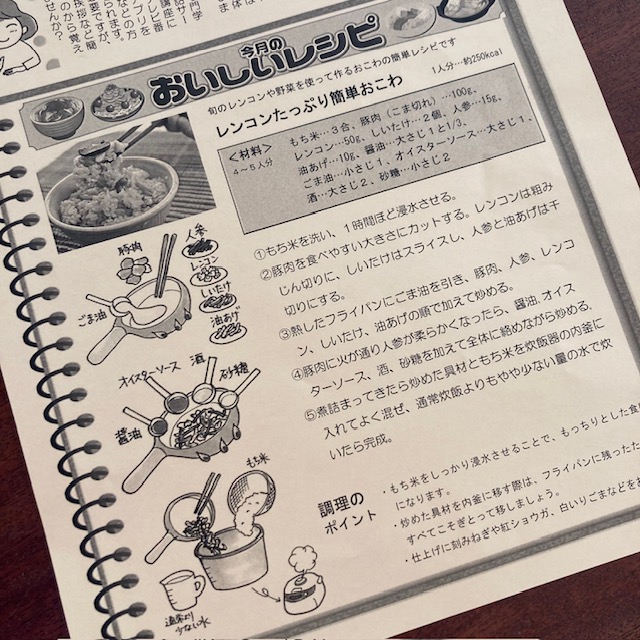 専門学
話サー
講座に
られます。
アプリを
レビ番
などの方
要ですが、
挨拶など簡
のから覚え
せんか？
今月の
おいしいレシピ
旬のレンコンや野菜を使って作るおこわの簡単レシピです
レンコンたっぷり簡単おこわ
1人分…約250kcal
＜材料＞
４～５人分
もち米…３合、豚肉（こま切れ）…100g、
レンコン…50g、しいたけ…２個、人参…15g、
油あげ…10g、醤油…大さじ１と1/3、
ごま油…小さじ１、オイスターソース…大さじ１、
酒…大さじ２、砂糖…小さじ２
①もち米を洗い、１時間ほど浸水させる。
②豚肉を食べやすい大きさにカットする。レンコンは粗み
じん切りに、しいたけはスライスし、人参と油あげは千
切りにする。
③熱したフライパンにごま油を引き、豚肉、人参、レンコ
ン、しいたけ、油あげの順で加えて炒める。
④豚肉に火が通り人参が柔らかくなったら、醤油、オイス
ターソース、酒、砂糖を加えて全体に絡めながら炒める。
⑤煮詰まってきたら炒めた具材ともち米を炊飯器の内釜に
入れてよく混ぜ、通常炊飯よりもやや少ない量の水で炊
いたら完成。
豚肉
人参
レンコン
しいたけ
油あげ
ごま油
オイスターソース
酒
砂糖
醤油
もち米
通常より
少ない水
調理の
ポイント
・もち米をしっかり浸水させることで、もっちりとした食
になります。
・炒めた具材を内釜に移す際は、フライパンに残った
すべてこそぎとって移しましょう。
・仕上げに刻みねぎや紅ショウガ、白いりごまなどをお